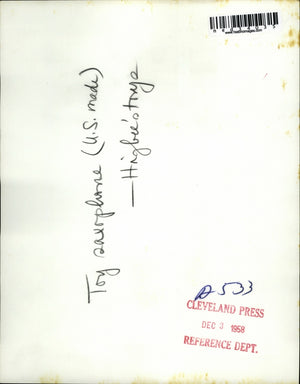 Toy saxophone (U.S. made)
—Higbee's toys
533
CLEVELAND PRESS
DEC 3 1958
REFERENCE DEPT.